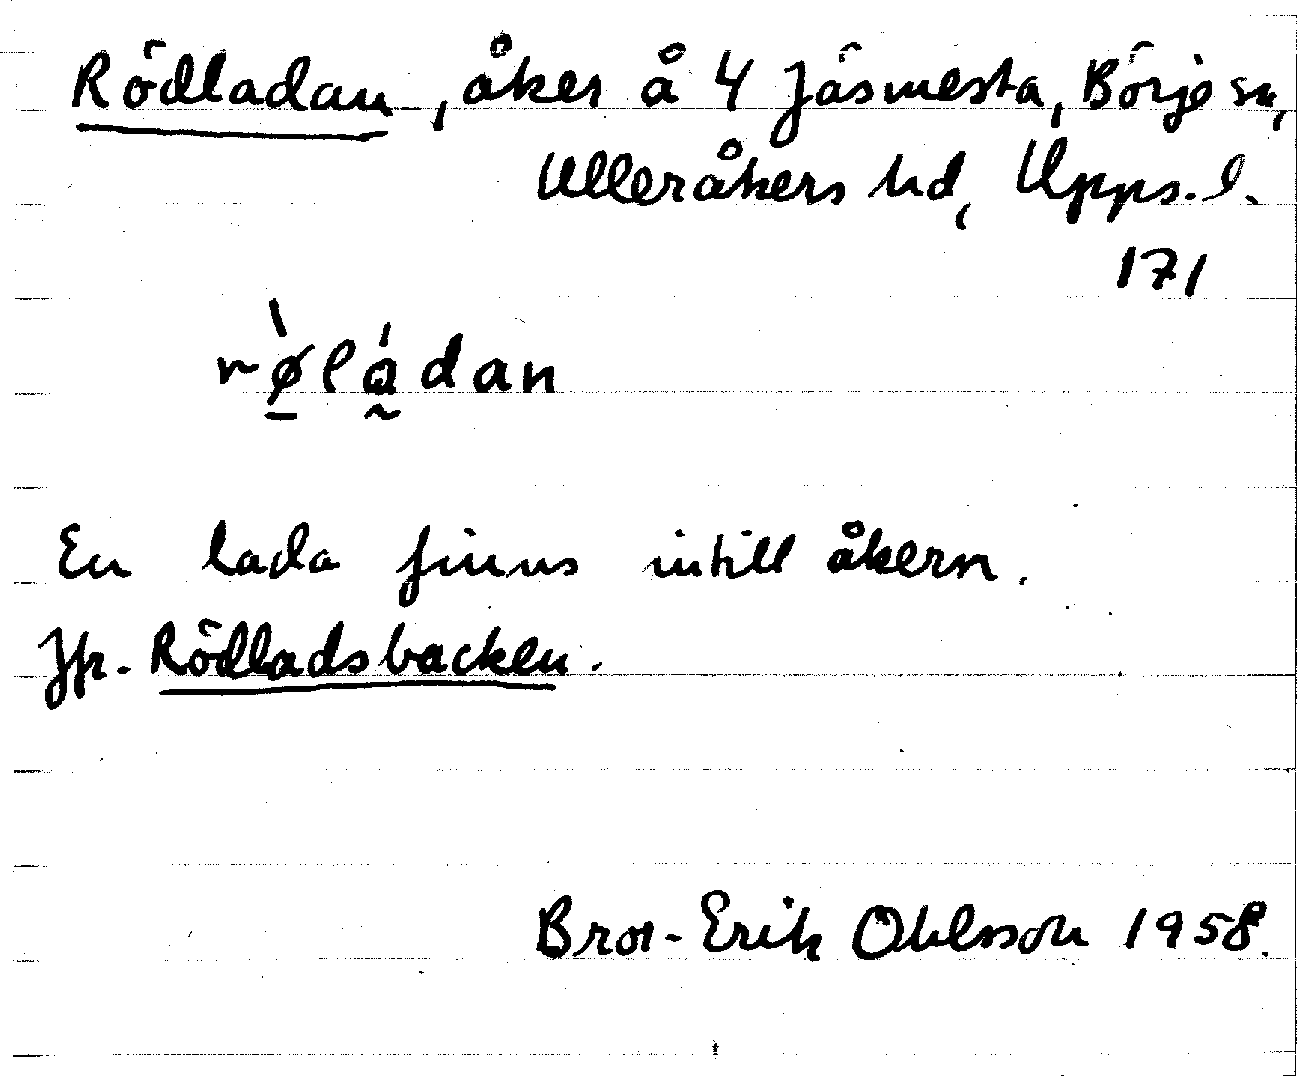 Rödladan, åker å 4 Jäsmesta, Börje sn,
Ulleråkers hd, Upps. l.
171
rø̠̀lá̰dan
En lada finns intill åkern.
Jfr. Rödladsbacken.
Bror-Erik Ohlsson 1958.